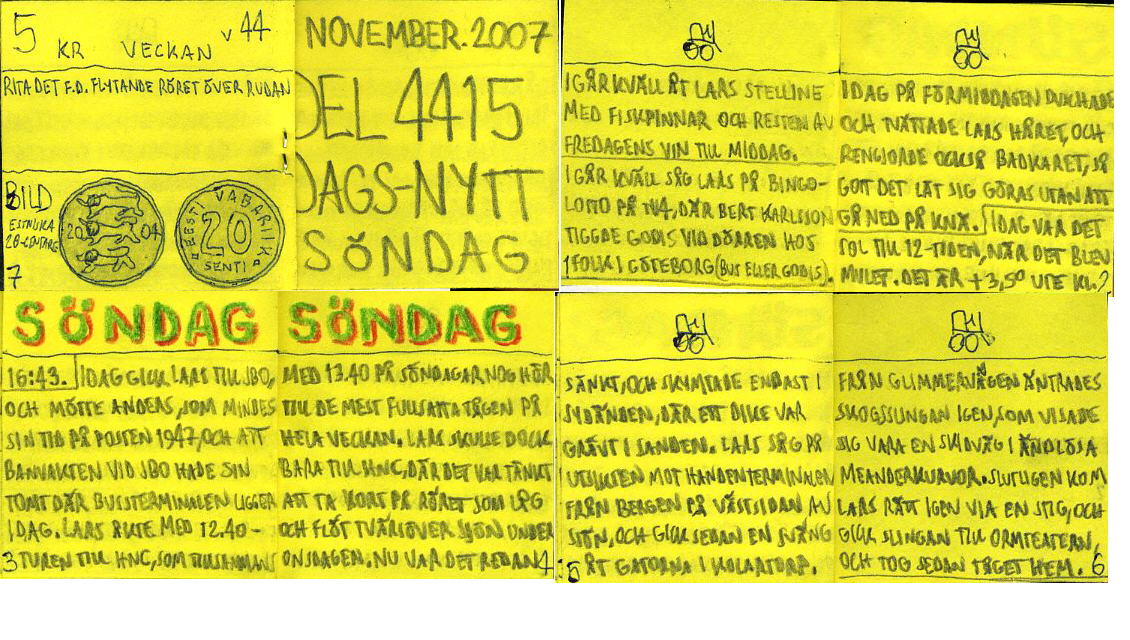 5 KR VECKAN V 44
RITA DET F.D. FLYTANDE RÖRET ÖVER RUDAN
BILD
ESTNISKA
20-CENTARE
20 04
EESTI VABARIIK
20
SENTI
7
NOVEMBER. 2007
DEL 4415
DAGS-NYTT
SÖNDAG
IGÅR KVÄLL ÅT LARS STELLINE
MED FISKPINNAR OCH RESTEN AV
FREDAGENS VIN TILL MIDDAG.
IGÅR KVÄLL SÅG LARS PÅ BINGO-
LOTTO PÅ TV4, DÄR BERT KARLSSON
TIGGDE GODIS VID DÖRREN HOS
1 FOLK I GÖTEBORG (BUS ELLER GODIS).
IDAG PÅ FÖRMIDDAGEN DUCHADE
OCH TVÄTTADE LARS HÅRET, OCH
RENGJORDE OCKSÅ BADKARET, SÅ
GOTT DET LÄT SIG GÖRAS UTAN ATT
GÅ NED PÅ KNÄ. IDAG VAR DET
SOL TILL 12-TIDEN, NÄR DET BLEV
MULET. DET ÄR +3,5° UTE KL. 2
SÖNDAG
16:43. IDAG GICK LARS TILL JBO,
OCH MÖTTE ANDERS, SOM MINDES
SIN TID PÅ POSTEN 1947, OCH ATT
BANVAKTEN VID JBO HADE SIN
TOMT DÄR BUSSTERMINALEN LIGGER
IDAG. LARS ÅKTE MED 12.40-
3 TUREN TILL HNC, SOM TILLSAMMANS
SÖNDAG
MED 13.40 PÅ SÖNDAGAR NOG HÖR
TILL DE MEST FULLSATTA TÅGEN PÅ
HELA VECKAN. LARS SKULLE DOCK
BARA TILL HNC, DÄR DET VAR TÄNKT
ATT TA KORT PÅ RÖRET SOM LÅG
OCH FLÖT TVÄRSÖVER SJÖN UNDER
ONSDAGEN. NU VAR DET REDAN 4
SÄNKT, OCH SKYMTADE ENDAST I
SYDÄNDEN, DÄR ETT DIKE VAR
GRÄVT I SANDEN. LARS SÅG PÅ
UTSIKTEN MOT HANDENTERMINALEN
FRÅN BERGEN PÅ VÄSTSIDAN AV
SJÖN, OCH GICK SEDAN EN SVÄNG
5 ÅT GATORNA I KOLARTORP.
FRÅN GLIMMERVÄGEN ÄNTRADES
SKOGSSLINGAN IGEN, SOM VISADE
SIG VARA EN SNINÅG I ÄNDLÖSA
MEANDERKURVOR. SLUTLIGEN KOM
LARS RÄTT IGEN VIA EN STIG, OCH
GICK SLINGAN TILL ORMTEATERN,
OCH TOG SEDAN TÅGET HEM. 6